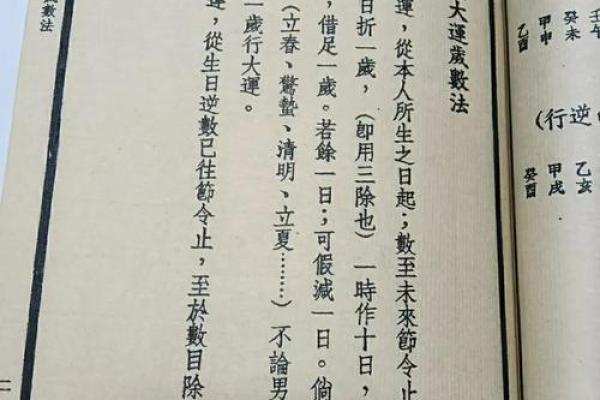 壬午
癸未
甲申
乙酉
逆行)
乙亥
甲戌
癸酉
大運歲數法
運，從本人所生之日起；數至未來節令止
日折一歲，（卽用三除也）一時作十日，
，借足一歲。若餘一日；可假減一日。倘
（立春、驚蟄、清明、立夏……）不論男
一歲行大運。
，從生日逆數已往節令止，至於數目除
數法